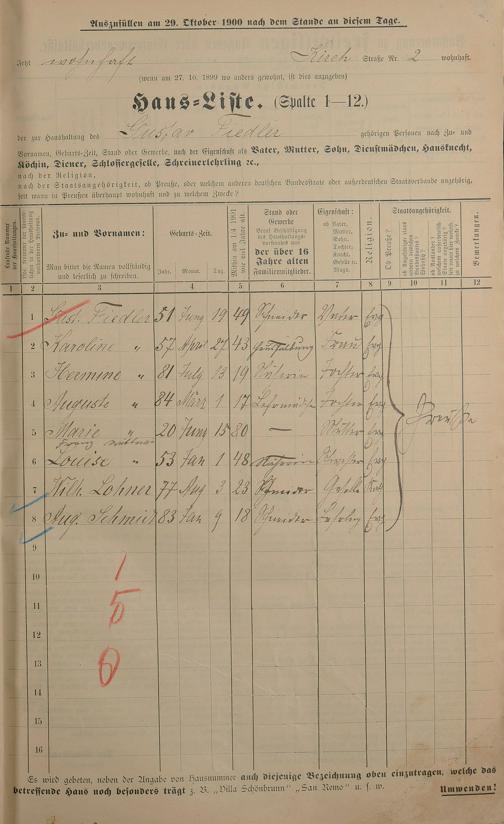 Auszufüllen am 29. Oktober 1900 nach dem Stande an diesem Tage.
Jetzt wohnhaft Kirch Straße Nr. 2 wohnhaft.
(wenn am 27. 10. 1899 wo anders gewohnt, ist dies anzugeben)
Haus-Liste. (Spalte 1—12.)
der zur Haushaltung des Gustav Fiedler gehörigen Personen nach Zu- und
Vornamen, Geburts-Zeit, Stand oder Gewerbe, nach der Eigenschaft als Vater, Mutter, Sohn, Dienstmädchen, Hausknecht,
Köchin, Diener, Schlossergeselle, Schreinerlehrling ꝛc.,
nach der Religion,
nach der Staatsangehörigkeit, ob Preuße, oder welchem anderen deutschen Bundesstaate oder außerdeutschen Staatsverbande angehörig,
seit wann in Preußen überhaupt wohnhaft und zu welchem Zwecke?
Zu- und Vornamen:
Man bittet die Namen vollständig und leserlich zu schreiben.
Geburts-Zeit.
Jahr. Monat. Tag.
Stand oder Gewerbe
der über 16 Jahre alten Familienmitglieder.
Eigenschaft:
ob Vater, Mutter, Sohn, Tochter, Knecht, Geselle u. Magd.
Religion.
Staatsangehörigkeit.
Ob Preuße?
Bemerkungen.
1 2 3 4 5 6 7 8 9 10 11 12
1 Gust. Fiedler 51 Juny 19 49 Schneider Vater Evg
2 Karoline " 57 April 27 43 Haushaltung Frau Evg
3 Hermine " 81 July 13 19 Näherin Tochter Evg
4 Auguste " 84 März 1 17 Lehrmädchen Tochter Evg
5 Marie " 20 Juni 15 80 — Mutter Evg
6 Louise " 53 Jan 1 48 Näherin Schwester Evg
7 Wilh. Lohner 77 Aug 3 23 Schneider Geselle Kath
8 Aug. Schmidt 83 Jan 9 18 Schneider Lehrling Evg
Preuße
9
10
11
12
13
14
15
16
1
5
0
Es wird gebeten, neben der Angabe von Hausnummer auch diejenige Bezeichnung oben einzutragen, welche das
betreffende Haus noch besonders trägt z. B. „Villa Schönbrunn" „San Remo" u. s. w. Umwenden!